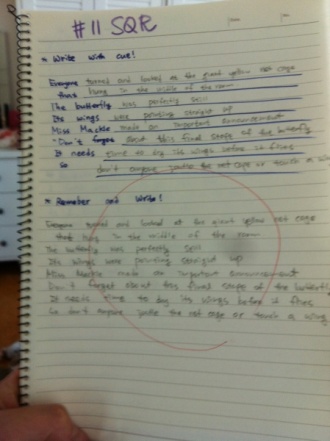 #11 SQR
* Write with cue!
Everyone turned and looked at the giant yellow net cage
that hung in the middle of the room
The butterfly was perfectly still
Its wings were pointing straight up
Miss Mackle made an important announcement
"Don't forget about this final stage of the butterfly
It needs time to dry its wings before it flies
So don't anyone poke the net cage or touch a win
* Remeber and Write!
Everyone turned and looked at the giant yellow net cage
that hung in the middle of the room
The butterfly was perfectly still
Its wings were pointing straight up
Miss Mackle made an important announcement
Don't forget about this final stage of the butterfly
It needs time to dry its wings before it flies
So don't anyone poke the net cage or touch a wing